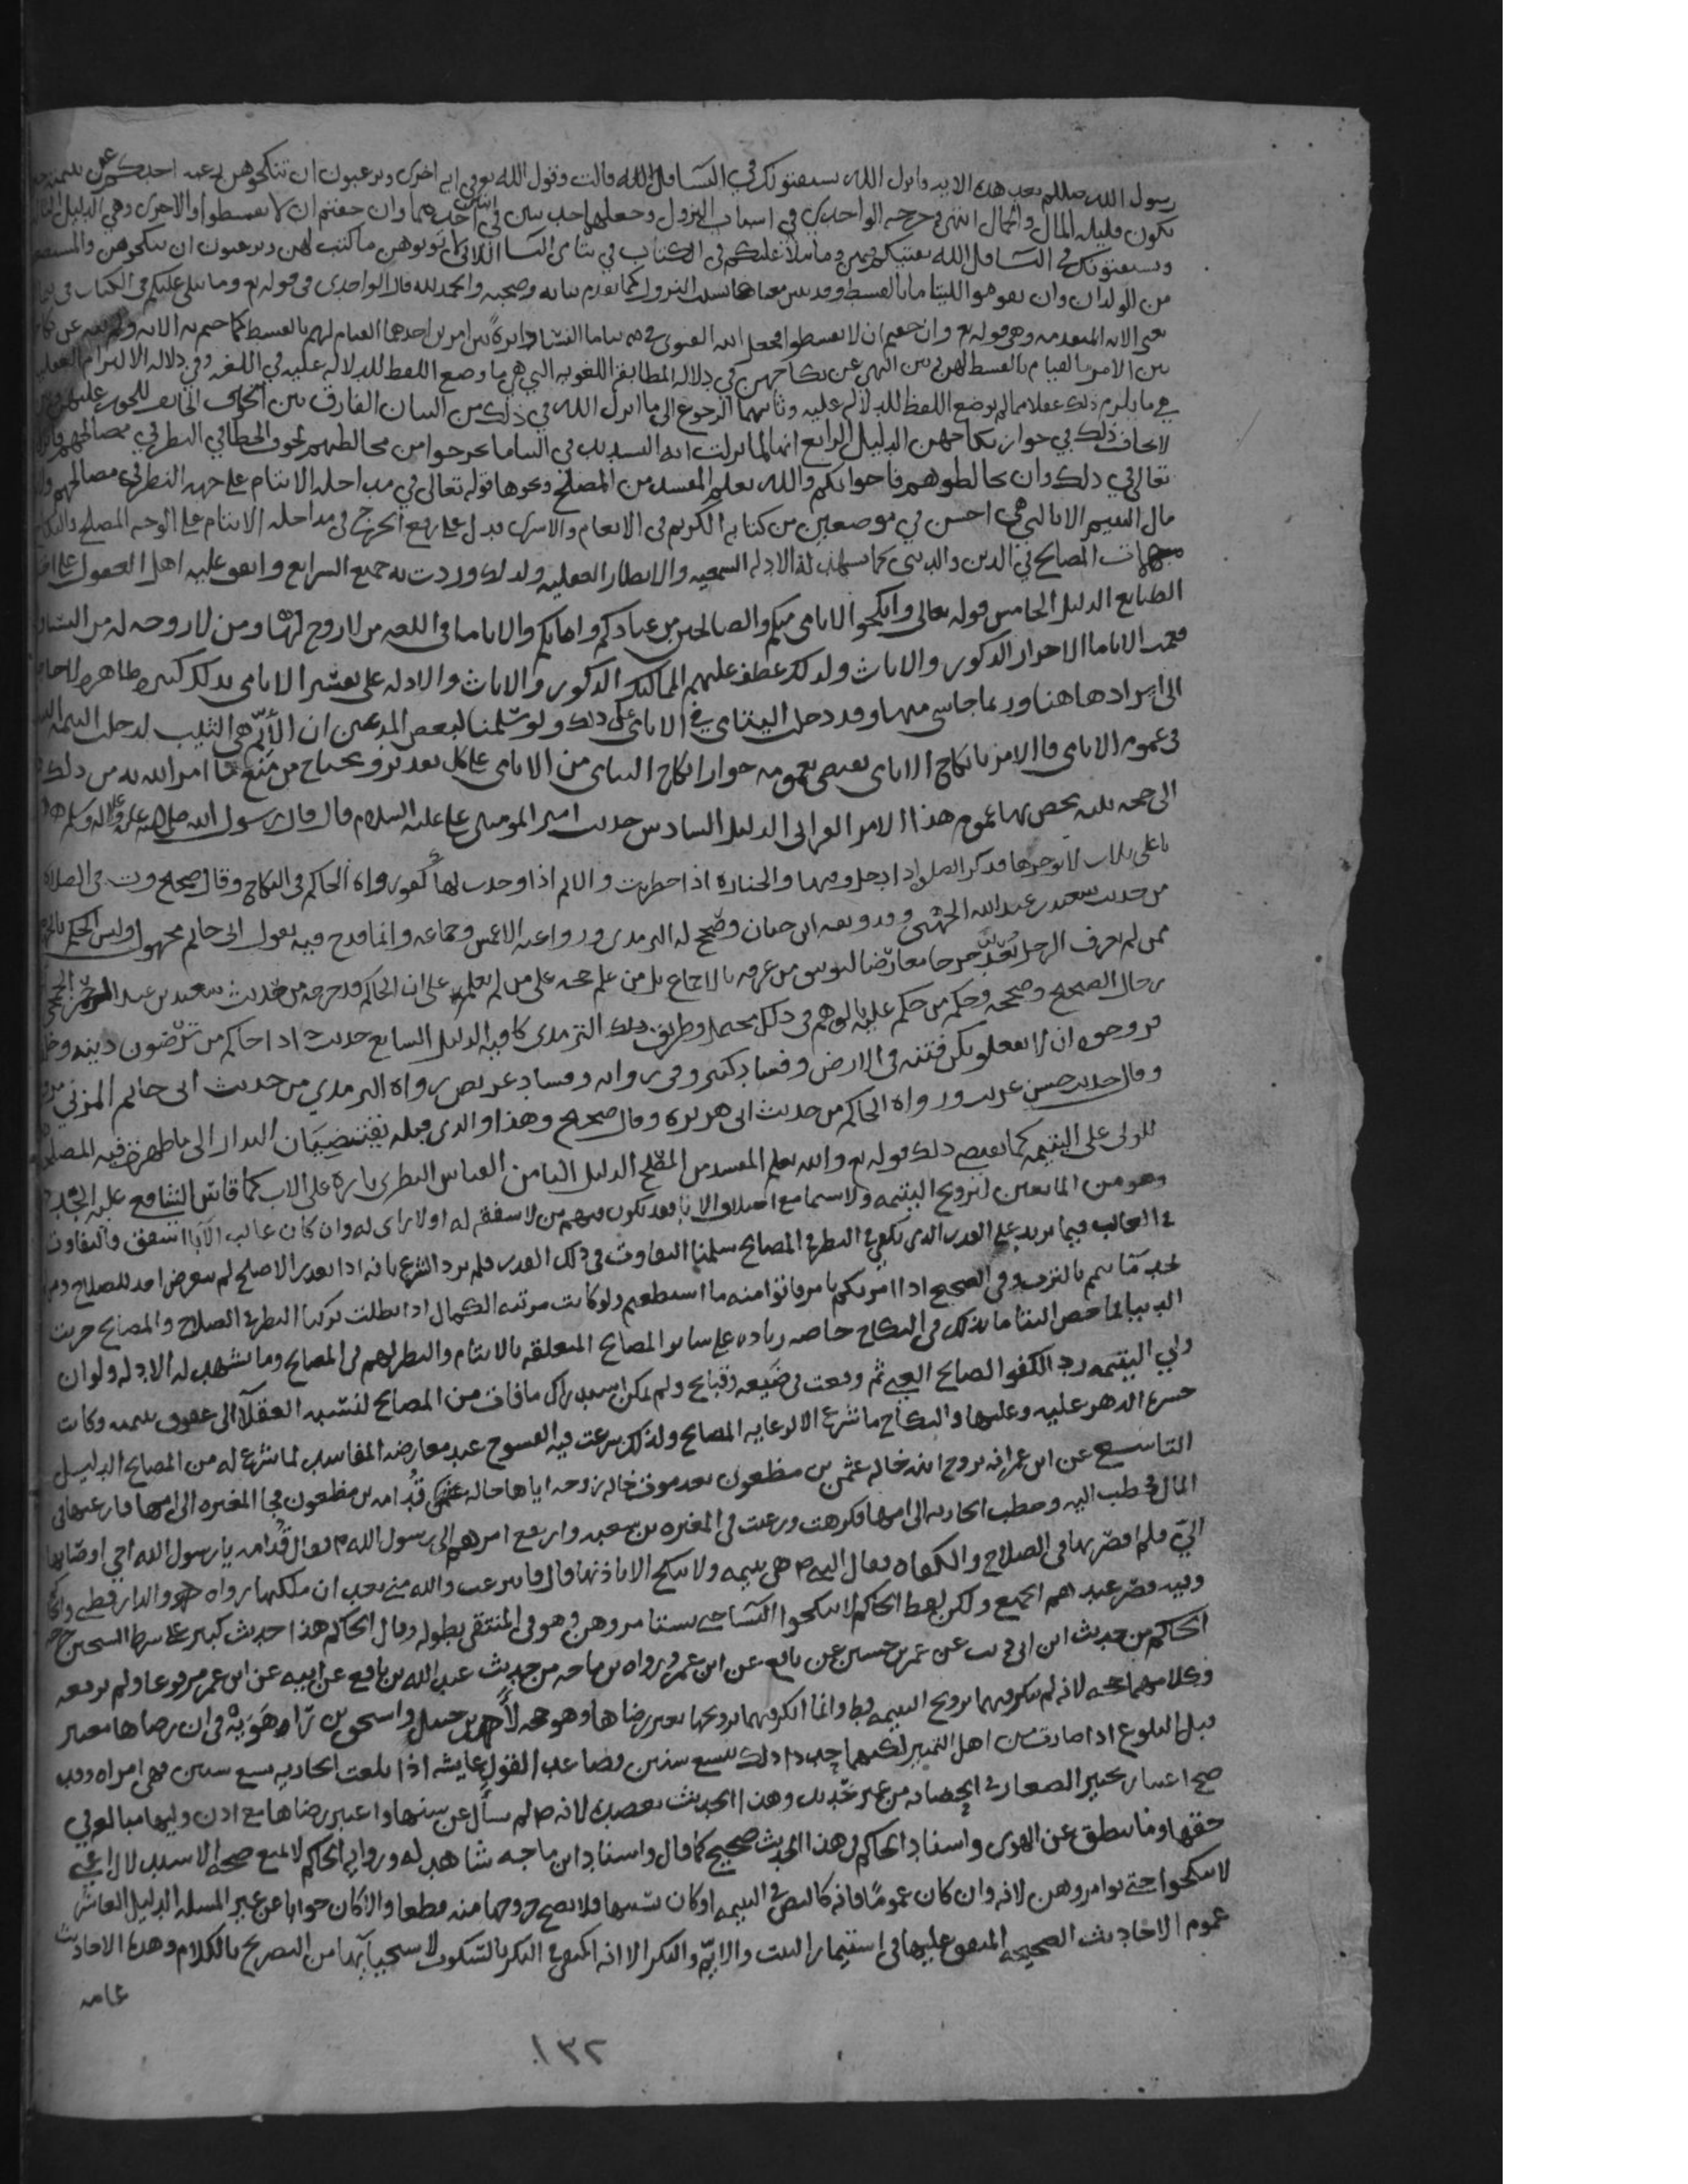 رسول الله صللم بعد هذه الايه وانزل الله يستفتونك في النسا قل الله قالت وقول الله تع في ايه اخرى وترغبون ان تنكحوهن رغبه احدكم عن يتيمته حين
تكون قليله المال والجمال انتهى وخرجه الواحدي في اسباب النزول وجعلها حديثين في احدهما وان خفتم ان لا تقسطوا والاخرى وهي الدليل الثالث
ويستفتونك في النسا قل الله يفتيكم فيهن وما يتلى عليكم في الكتاب في يتامى النسا اللاتي لا توتوهن ما كتب لهن وترغبون ان تنكحوهن والمستضعفين
من الولدان وان تقوموا لليتامى بالقسط وقد بين معناها سبب النزول كما تقدم بيانه وصحته والحمد لله قال الواحدي في قوله تع وما يتلى عليكم في الكتاب في
يعني الايه المتقدمه وهي قوله تع وان خفتم ان لا تقسطوا فجعل الله الفتوى في يتاما النسا دايرة بين امرين احدهما القيام لهم بالقسط كما ختم به الايه ولم
بين الامر بالقيام بالقسط لهن وبين النهي عن نكاحهن في دلاله المطابقه اللغويه التي هي ما وضع اللفظ للدلاله عليه في اللغه وفي دلاله الالتزام العقليه
هي ما يلزم ذلك عقلا مما لم يوضع اللفظ للدلاله عليه وثانيهما الرجوع الى ما انزل الله في ذلك من البيان الفارق بين
ذلك في جواز نكاحهن الدليل الرابع انها لما نزلت ايه التشديد في اليتاما تحرجوا من مخالطتهم لخوف الخطا في النظر في مصالحهم فانزل
تعالى في ذلك وان تخالطوهم فاخوانكم والله يعلم المفسد من المصلح ونحوها قوله تعالى في مداخله الايتام على جهه النظر في مصالحهم ولا
مال اليتيم الا بالتي هي احسن في موضعين من كتابه الكريم في الانعام والاسرى فدل على رفع الحرج في مداخله الايتام على الوجه المصلح والنكاح
مهمات المصالح في الدين والدنيى كما يشهد له الادله السمعيه والانظار العقليه ولذلك وردت به جميع الشرايع واتفق عليه اهل العقول
الطبايع الدليل الخامس قوله تعالى وانكحوا الايامى منكم والصالحين من عبادكم وامايكم والاياما في اللغه من لا زوج لها ومن لا زوجه له من النسا
فعمت الاياما الاحرار الذكور والاناث ولذلك عطف عليهم المماليك الذكور والاناث والادله على تفسير الايامى بذلك كثيره ظاهره لا حاجه
الى ايرادها هنا وربما جا شي منها وقد دخل اليتامى في الايامى على ذلك ولو سلمنا لبعض المدعين ان الأيّم هي الثيب لدخلت اليتيمه
في عموم الايامى فالامر بانكاح الايامى يقتضي بعمومه جواز انكاح اليتامى من الايامى على كل تقدير ويحتاج من منع مما امر الله به من ذلك
الى حجه بينه يخص بها عموم هذا الامر القراني الدليل السادس حديث امير المومنين علي عليه السلام قال قال رسول الله صلى الله عليه واله وسلم
يا علي ثلاث لا توخرها فذكر الصلاه اذا دخل وقتها والجنازه اذا حضرت والايم اذا وجدت لها كفوا رواه الحاكم في النكاح وقال صحيح وت في الصلاه
من حديث سعيد بن عبد الله الجهني وقد وثقه ابن حبان وصحح له الترمدي وروا عنه الاعمش وجماعه وانما قدح فيه بقول ابي حاتم مجهول وليس
ممن لم يعرف الرجل جرحا معارضا لتوثيق من عرفه بالاجماع بل من علم حجه على من لم يعلم على ان الحاكم قد خرجه من حديث سعيد بن عبد الرحمن الجمحي
رجال الصحيح وصححه وحكم من حكم عليه بالوهم في ذلك محتمل وطريق ذلك الترمدي كافيه الدليل السابع حديث اذا اتاكم من ترضون دينه
فزوجوه ان لا تفعلوا تكن فتنه في الارض وفساد كبير وفي روايه وفساد عريض رواه الترمدي من حديث ابي حاتم المزني
وقال حديث حسن غريب ورواه الحاكم من حديث ابي هريره وقال صحيح وهذا والذي قبله يقتضيان البدار الى ما ظهرت فيه المصلحه
للولي على اليتيمه كما يقتضيه ذلك قوله تع والله يعلم المفسد من المصلح الدليل الثامن القياس النظري تاره على الاب كما قاس الشافع عليه الجد
وهو من المانعين لتزويج اليتيمه ولا سيما مع اختلاف الابا فقد يكون منهم من لا شفقه له او لا راى له وان كان غالب الآبا اشفق فالتفاوت
في الغالب فيما يزيد على القدر الذي يكفي في النظر في المصالح سلمنا التفاوت في ذلك القدر فلم يرد الشرع بانه اذا تعذر الاصلح لم يتعرض احد للصلاح
بالتراب وفي الصحيح اذا امرتكم بامر فاتوا منه ما استطعتم ولو كانت مرتبه الكمال اذا بطلت تركنا النظر في الصلاح والمصالح خربت
الدنيا انما خص اليتاما بذلك في النكاح خاصه زياده على ساير المصالح المتعلقه بالايتام والنظر لهم في المصالح وما يشهد له الادله ولو ان
ولي اليتيمه رد الكفو الصالح الغني ثم وقعت في ضيعه وقبايح ولم يمكن استدراك ما فات من المصالح لنسبه العقلآ الى عقوق يتيمه وكانت
حسره الدهر عليه وعليها والنكاح ما شرع الا لرعايه المصالح ولذلك شرعت فيه الفسوخ عند معارضه المفاسد لما شرع له من المصالح الدليل
التاسع عن ابن عمر انه تزوج ابنه خاله عثمن بن مظعون بعد موت خاله زوجه اياها خاله قدامه بن مظعون فجا المغيره الى امها فارغبها في
المال فخطب اليه وحطت الجاريه الى امها فكرهت ورغبت في المغيره بن شعبه وارتفع امرهم الى رسول الله م فقال قدامه يا رسول الله ابنه اخي اوصا بها
اليّ فلم اقصر بها في الصلاح والكفاه فقال النبي م هي يتيمه ولا تنكح الا باذنها قال فانتزعت والله مني بعد ان ملكتها رواه والدارقطني
الجميع ولكن لفظ الحاكم لا تنكحوا النسا حتى تستامروهن وهو في المنتقى بطوله وقال الحاكم هذا حديث كبير على شرط الشيخين
الحاكم من حديث ابن ابي ذيب عن عمر بن حسين عن نافع عن ابن عمر ورواه بن ماجه من حديث عبد الله بن نافع عن ابيه عن ابن عمر مرفوعا ولم يرفعه
وكلامهما حجه لانه لم ينكر فيهما تزويج اليتيمه قط وانما انكر فيهما تزويجها بغير رضاها وهو حجه لأحمد بن حنبل واسحق بن رَاهَوَيْه في ان رضاها معتبر
قبل البلوغ اذا صارت من اهل التمييز لكنهما حددا ذلك بتسع سنين فصاعدا لقول عايشه اذا بلغت الجاريه تسع سنين فهي امراه وقد
صح اعتبار تخيير الصغار في الحضانه من غير تحديد وهذا الحديث يعضده لانه م لم يسأل عن سنها واعتبر رضاها مع اذن وليها مبالغه في
حقها وما ينطق عن الهوى واسناد الحاكم في هذا الحديث صحيح كما قال واسناد ابن ماجه شاهد له وروايه الحاكم لا تمنع صحه الاستدلال اعني
لا تنكحوا حتى توامروهن لانه وان كان عمومًا فانه كالنص في اليتيمه او كان سببها فلا يصح خروجها منه قطعا والا كان جوابا عن غير المسئله الدليل العاشر
عموم الاحاديث الصحيحه المتفق عليها في استيمار البنت والايّم والبكر الا انه اكتفى في البكر بالسكوت لاستحيايها من التصريح بالكلام وهذه الاحاديث
عامه
١٣٢